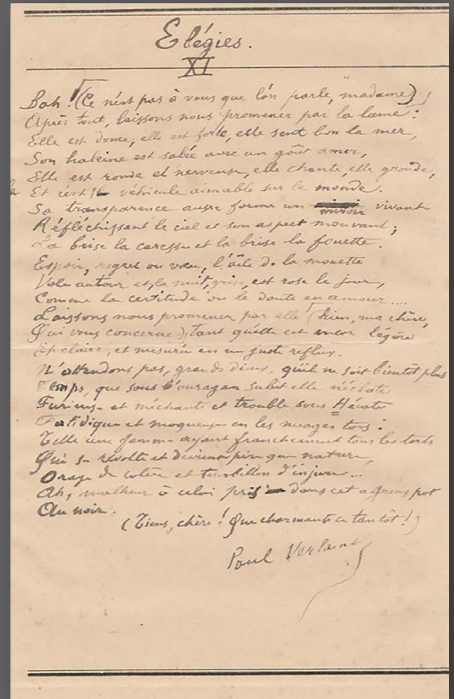 Elégies.
XI
Bah ! (Ce n'est pas à vous que l'on parle, madame)
Après tout, laissons nous promener par la lame :
Elle est douce, elle est forte, elle sent bon la mer,
Son haleine est salée avec un goût amer,
Elle est ronde et nerveuse, elle chante, elle gronde,
Et c'est le véhicule aimable sur le monde.
Sa transparence aussi forme un miroir vivant
Réfléchissant le ciel et son aspect mouvant ;
La brise la caresse et la brise la fouette.
Espoir, regret ou vœu, l'aile de la mouette
Vole autour et, la nuit, grise, est rose le jour,
Comme la certitude ou le doute en amour....
Laissons nous promener par elle (bien, ma chère,
Qui vous concerne), tant qu'elle est encor légère
Et claire, et mesurée en un juste reflux.
N'attendons pas, grands dieux, qu'il ne soit bientôt plus
Temps, que sous l'ouragan subit elle éclate
Furieuse et méchante et trouble sous Hécate
Fatidique et moqueuse en les nuages tors :
Telle une femme ayant franchement tous les torts
Qui se révolte et devient pire que nature,
Orage de colère et tourbillon d'injure...
Ah, malheur à celui pris dans cet affreux pot
Au noir.
(Tiens, chère ! Que charmante tantôt !)
Paul Verlaine